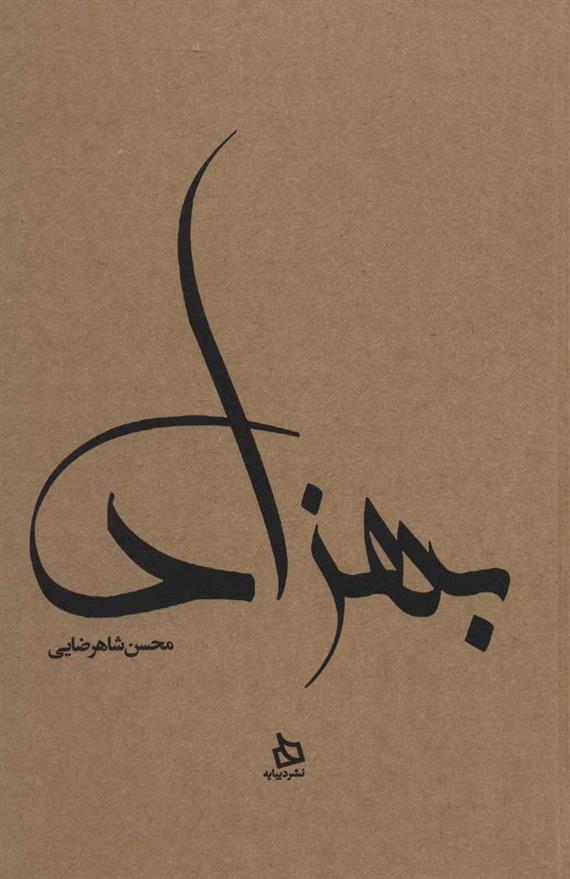 بهزاد
محسن شاهرضایی
نشر دیبایه